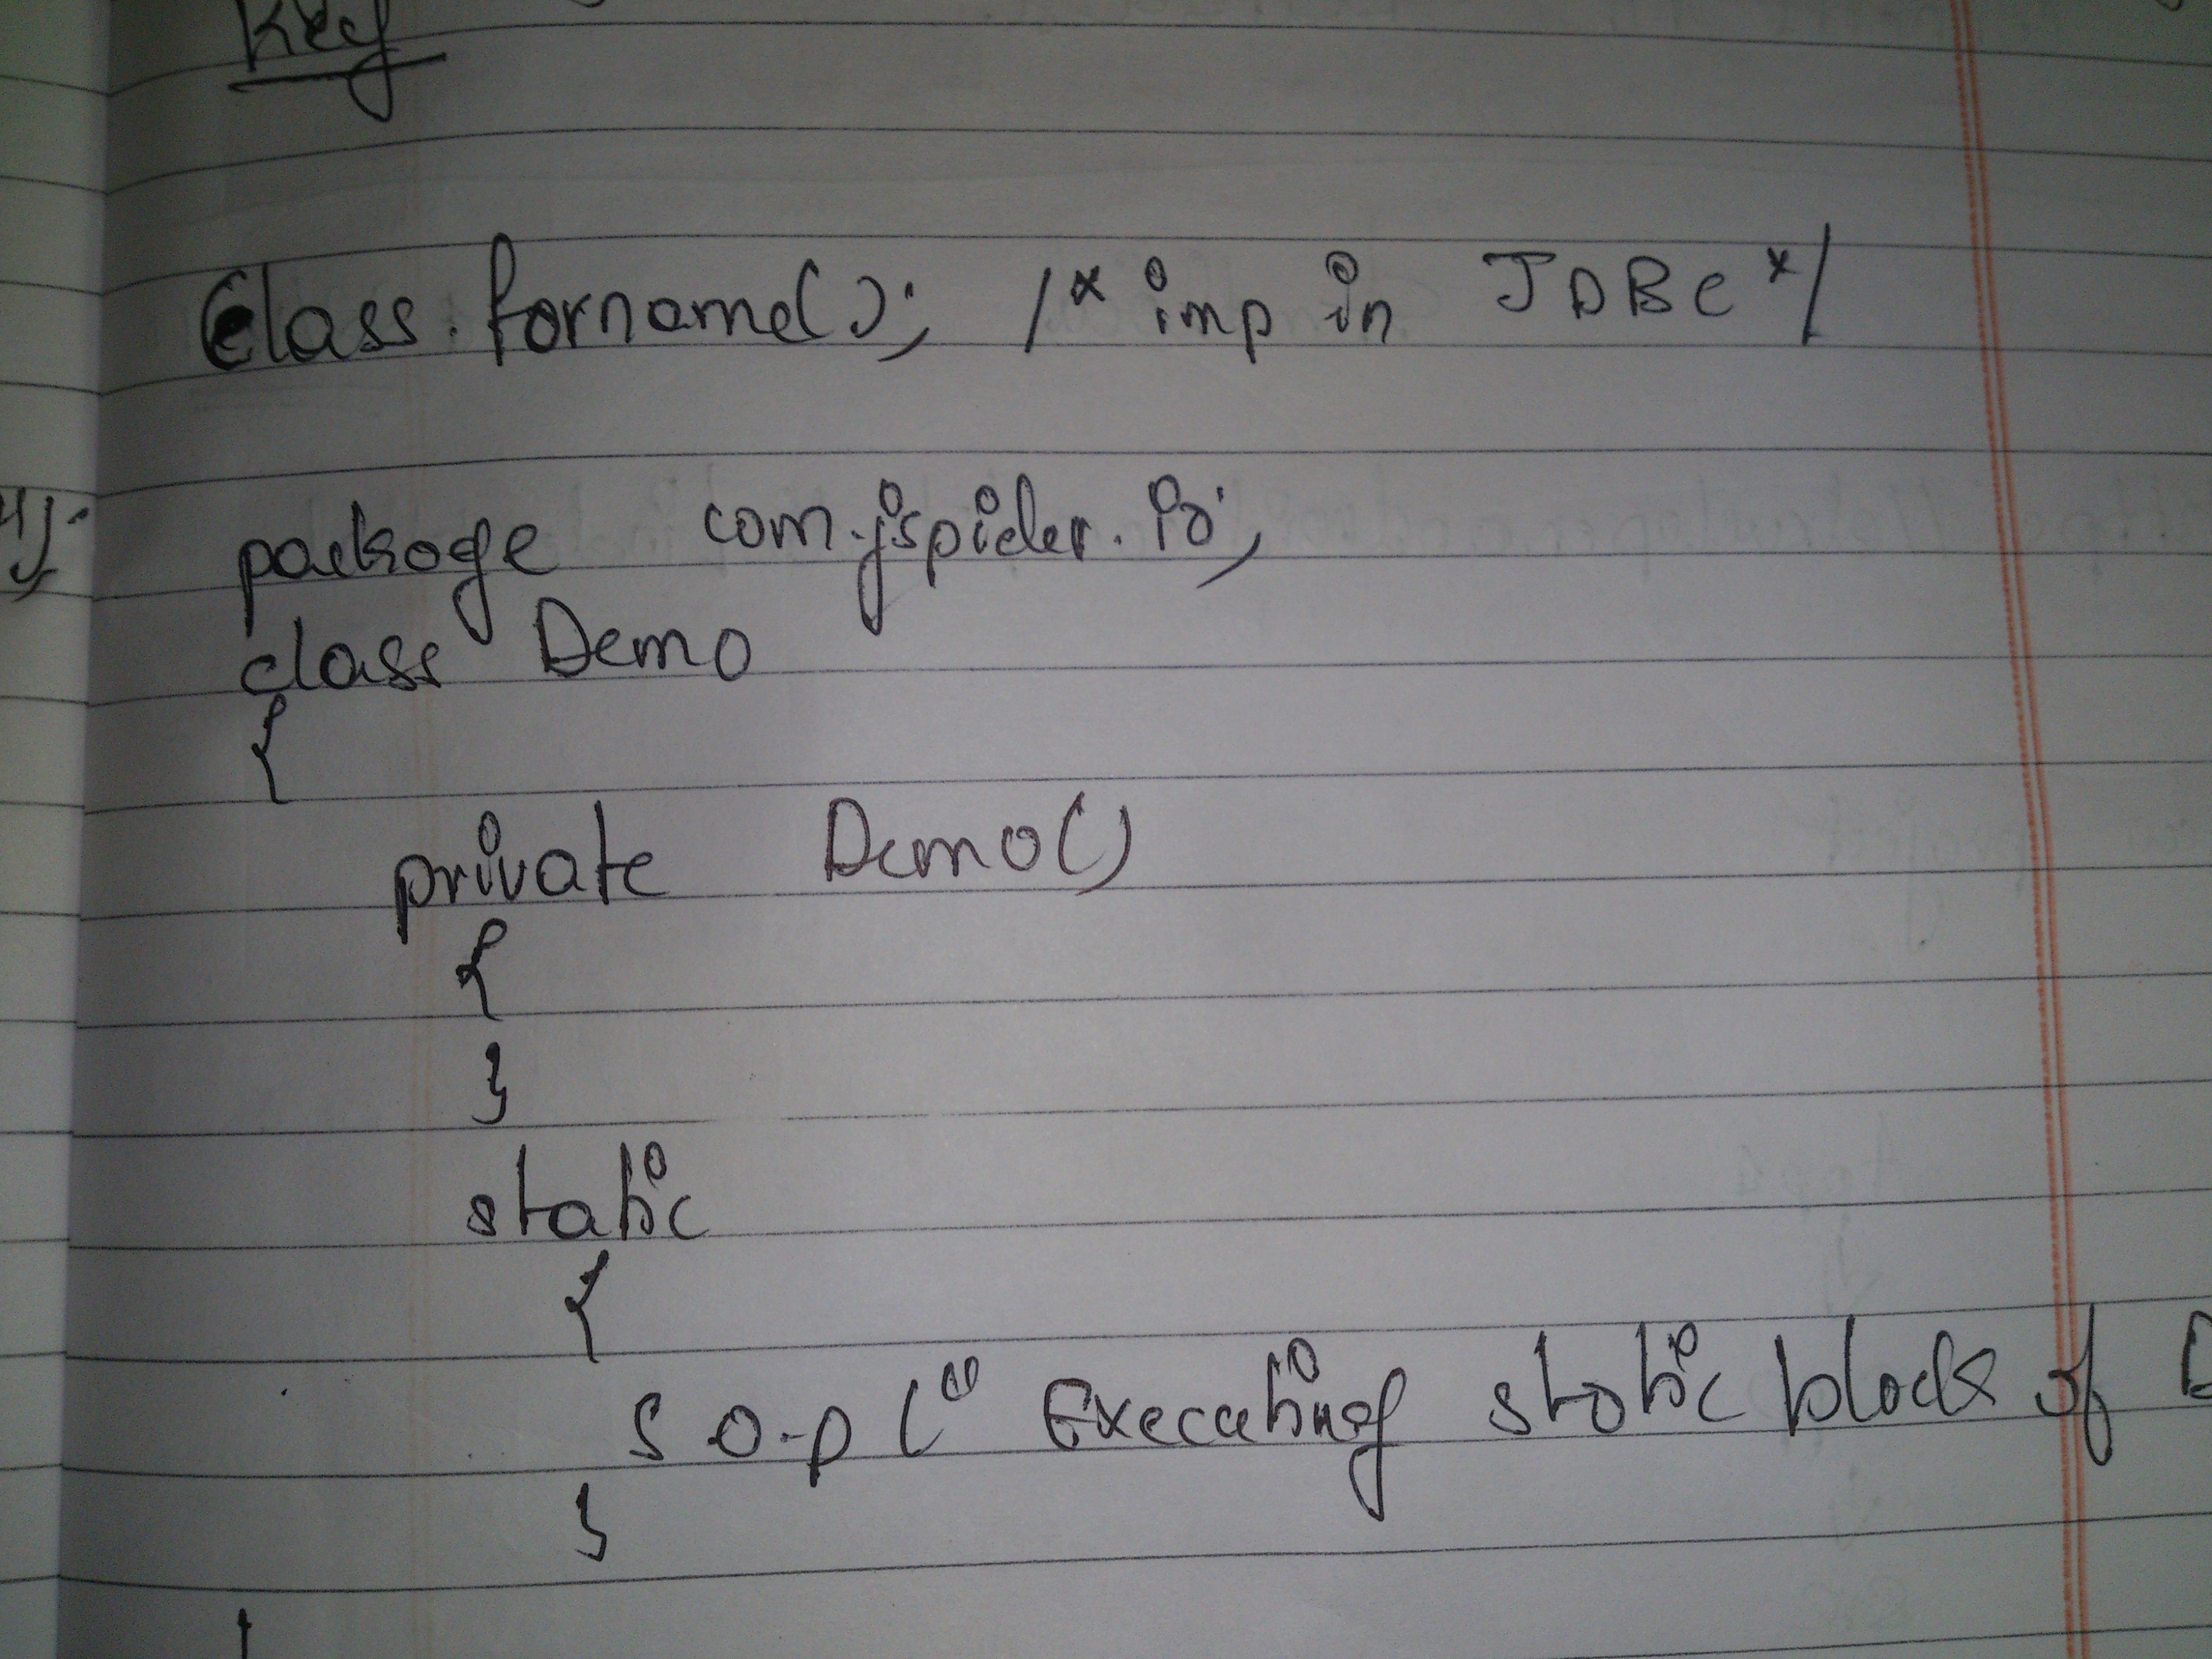 Key
Class.forname(); /* imp in JDBC */
4).
package com.jspider.io;
class Demo
{
private Demo()
{
}
static
{
S.o.p(" Executing static block of
}